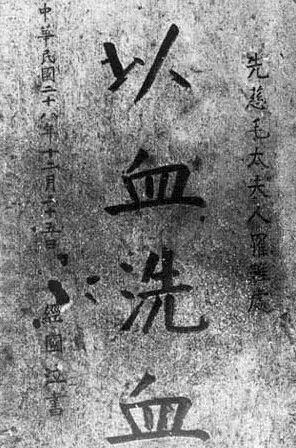 先慈毛太夫人罹難處
以血洗血
中華民國二十八年十二月十五日 經國泣書